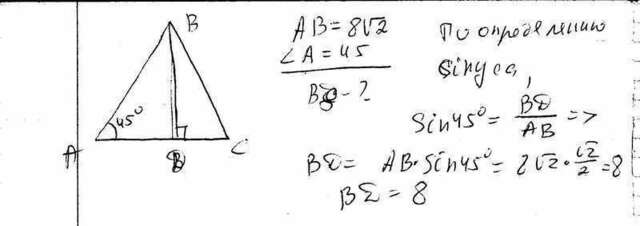 B
45°
A
D
C
AB=8√2
∠A=45
BD-?
По определению
синуса,
Sin45°=BD/AB=>
BD= AB·Sin45°=8√2·√2/2=8
BD=8